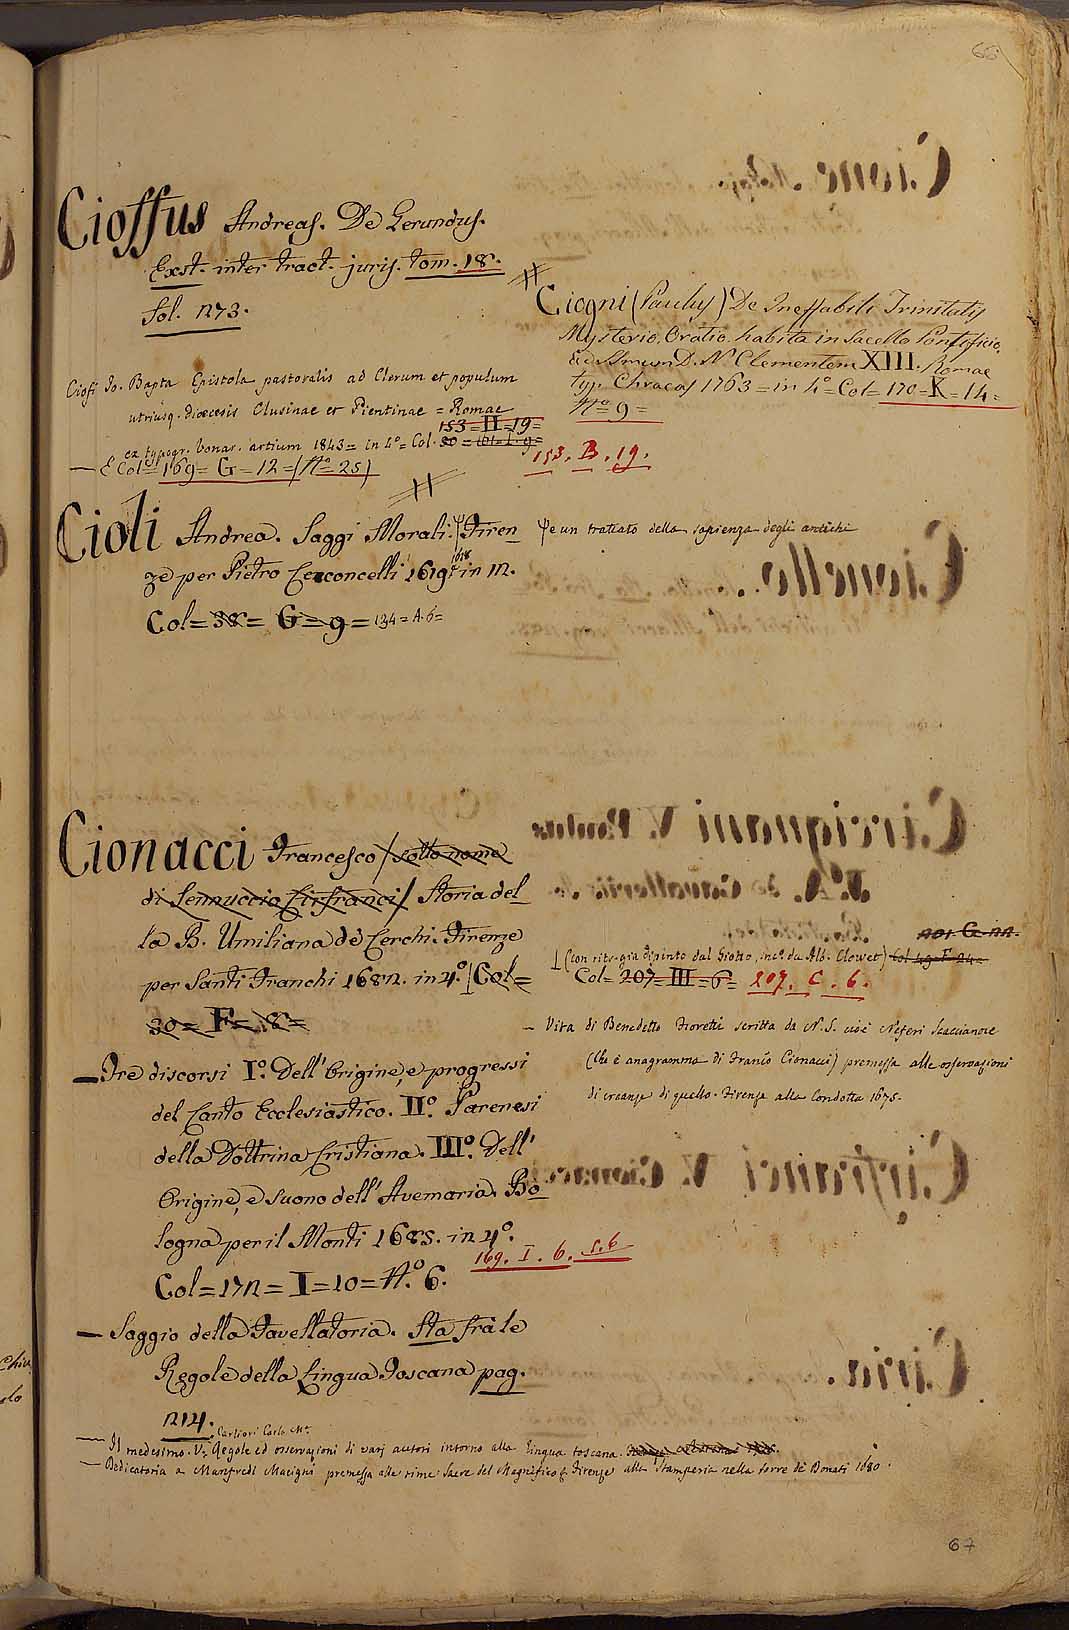 66
Cioffus Andreas. De Gerundus.
Exst. inter tract. juris. tom. 18.
fol. 273.
Ciogni (Paulus) De Ineffabili Trinitatis
Mysterio, Oratio habita in Sacello Pontificio,
Clementem XIII. Romae
typ. Chracas 1763 = in 4º = Col = 170 = K = 14 =
Nº 9 =
Ciofi Jo. Bapta Epistola pastoralis ad Clerum et populum
utriusq. dioecesis Clusinae et Pientinae = Romae
153 = H = 19 =
ex typogr. bonar. artium 1843 = in 4º = Col.
153. B. 19.
— E Col = 169 = G = 12 = (Nº 25)
Cioli Andrea. Saggi Morali. Firen
e un trattato della sapienza degli antichi
ze per Pietro Ceconcelli 1619 in 12.
1618
Col = 38 = G = 9 = 134 = A. 6 =
Cionacci Francesco / sotto nome
di Sennuccio Cirfranci / Storia del
la B. Umiliana de' Cerchi. Firenze
per Santi Franchi 1682. in 4º. | Col =
30 = F = 8 =
(con ritr. gia dipinto dal Giotto, inc. da Alb. Clowet) Col 49 = F 24 =
Col = 207 = III = 6 = 207. C. 6.
— Vita di Benedetto Fioretti scritta da N. S. cioè Neferi Scaccianoce
(che è anagramma di Franco Cionacci) premessa alle osservazioni
di creanze di quello. Firenze alla Condotta 1675.
— Tre discorsi Iº. Dell' Origine, e progressi
del Canto Ecclesiastico. IIº. Parenesi
della Dottrina Cristiana. IIIº. Dell'
Origine, e suono dell' Avemaria. Bo
logna per il Monti 1685. in 4º.
169. I. 6. 5.6
Col = 172 = I = 10 = Nº. 6.
— Saggio della Favellatoria. Sta frà le
Regole della Lingua Toscana pag.
214.
Carlieri Carlo Mª
— Il medesimo. V: Regole ed osservazioni di varj autori intorno alla lingua toscana.
— Dedicatoria a Manfredi Macigni premessa alle rime Sacre del Magnifico Firenze alla Stamperia nella torre de' Donati 1680.
67